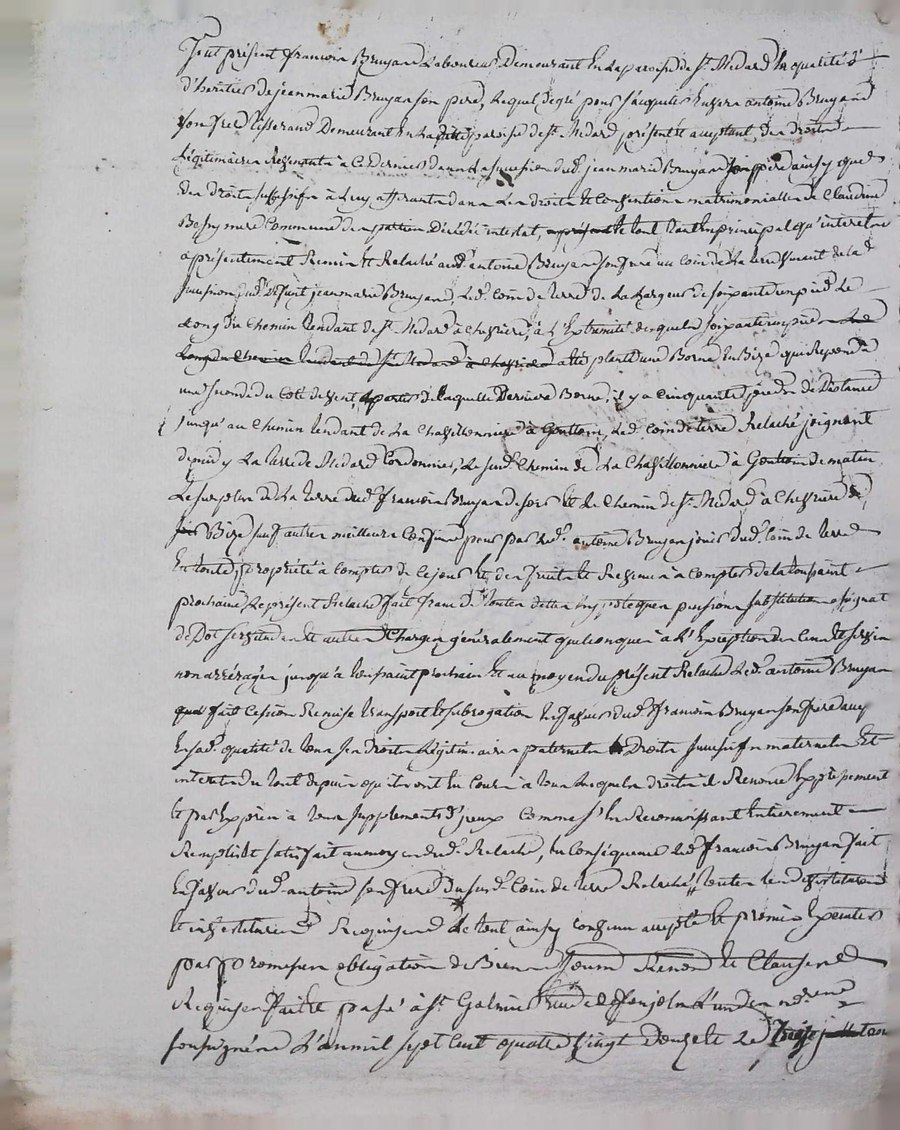 fut présent françois Bruyas Laboureur Demeurant En la paroisse de St Medard En qualité d'
d'heritier de jeanmarie Bruyas son pere, lequel de gré pour s'acquiter Envers antoine Bruyas
son frere tisserand Demeurant En la ditte paroisse de St Medard présent et acceptant des droits
Légitimaires Revenants à Ce Dernier dans la succession dud. jeanmarie Bruyas son pere ainsy que
des droits successifs à Luy afferants dans Les droits et Conventions matrimonialles de Claudine
mere Commune des parties Décédée intestat, le tout tant En principal qu'interets
a présentement Remis et Relaché aud. antoine Bruyas son frere un Coin de La terre dépendant de la d.
succession dud. Defunt jeanmarie Bruyas, Led. Coin de terre de La Largeur de soixante un pieds Le
Long du Chemin tendant de St Medard à Chevrieres, à L'Extremité desquels soixante un pieds
Long du Chemin tendant de St Medard à Chevrieres a été planté une Borne En Bize qui Repond à
une seconde du Coté de vent, à partir de laquelle Derniere Borne, il y a Cinquante pieds de Distance
jusqu'au Chemin tendant de La à Led. Coin de terre Relaché joignant
de midy La terre de Medard Cordonnier, Le susd. Chemin de La à de matin
Le surplus de La terre dud. françois Bruyas de soir Et Le Chemin de St Medard à Chevrieres de
Bize sauf autres meilleurs Confins pour par Led. antoine Bruyas jouir dud. Coin de terre
En toute propriété à Compter de Ce jour Et des fruits et Revenus à Compter de la toussaint
prochaine, Le présent Relaché fait franc de toutes dettes hypoteques pensions substitution assignat
de Dot servitudes et autres Charges généralement quelconques à L'Exception des Cens et servis
non arréragés jusqu'à toussaint prochain Et au moyen du présent Relaché Led. antoine Bruyas
fait Cession Remise transport et subrogation En faveur dud. françois Bruyas son frere
En sad. qualité de tous ses droits Légitimaires paternels Droits successifs maternels Et
interets du tout depuis qu'ils ont Eu Cours à tous lesquels droits il Renonce Expressement
Et par Exprès à tous supplements d'jceux Comme s'En Reconnoissant Entierement
Remply et satisfait au moyen dud. Relaché, En Conséquence Led. françois Bruyas fait
En faveur dud. antoine son frere du susd. Coin de terre Relaché, toutes les dévestitures
et investitures Requises de tout ainsy Convenu accepté Et promis Executer
par promesses obligation de Biens soumis Renon. et Clauses
Requises fait et passé à St Galmier Etude de L'un des nres
soussignés L'an mil sept Cent quatre vingt douze et Le